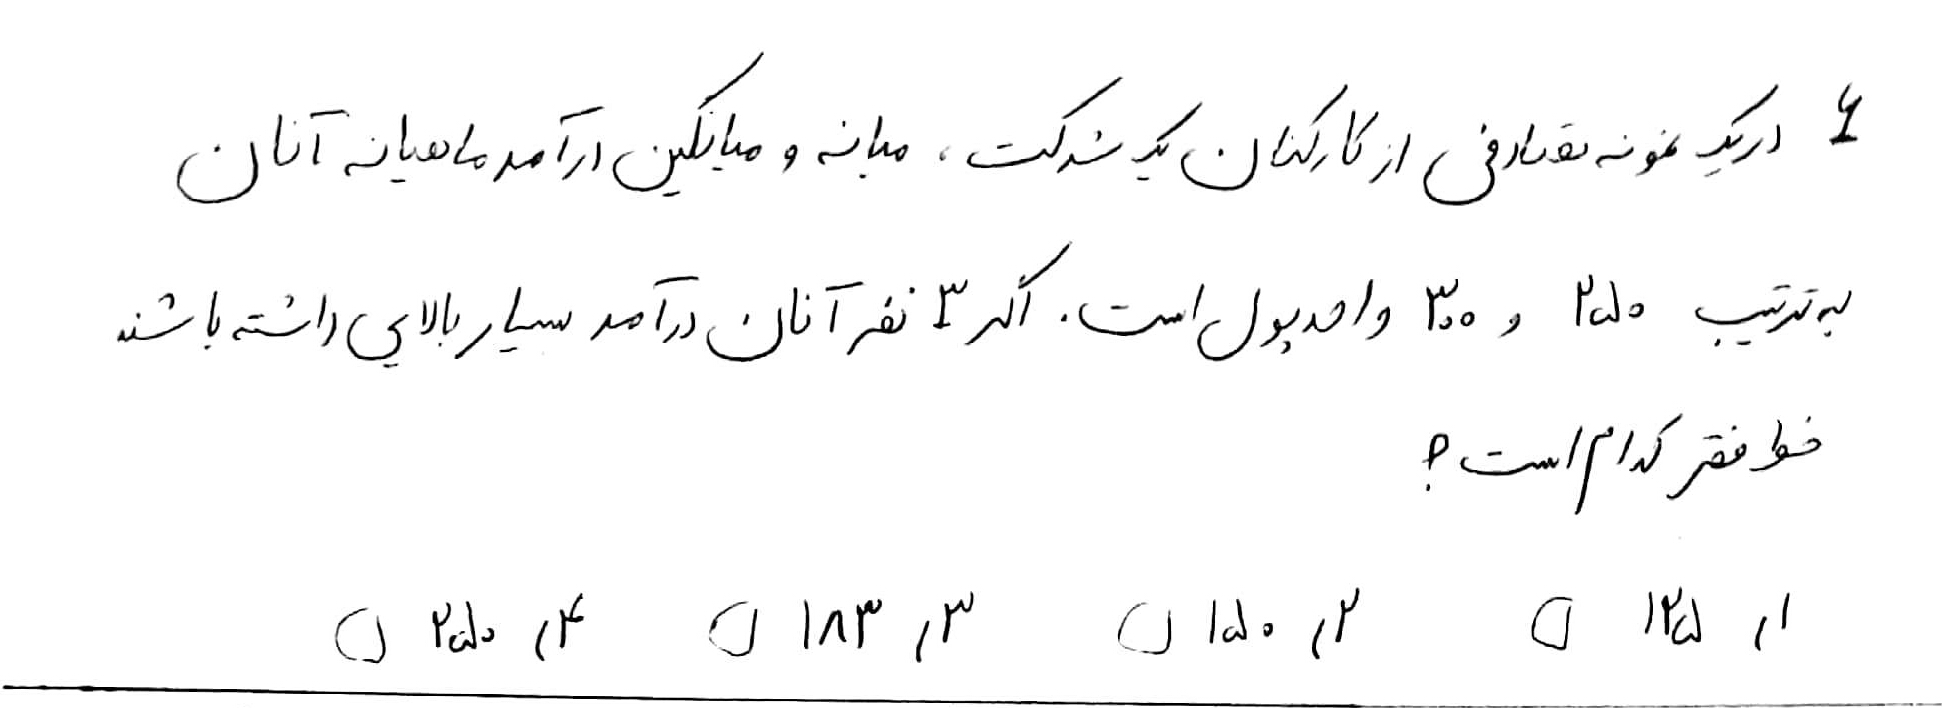 ۶ در یک نمونه تصادفی از کارکنان یک شرکت، میانه و میانگین درآمد ماهیانه آنان
به ترتیب ۲۵۰ و ۳۰۰ واحد پول است. اگر ۳ نفر آنان درآمد بسیار بالایی داشته باشند
خط فقر کدام است؟
۱) ۱۲۵ ۲) ۱۵۰ ۳) ۱۸۳ ۴) ۲۵۰